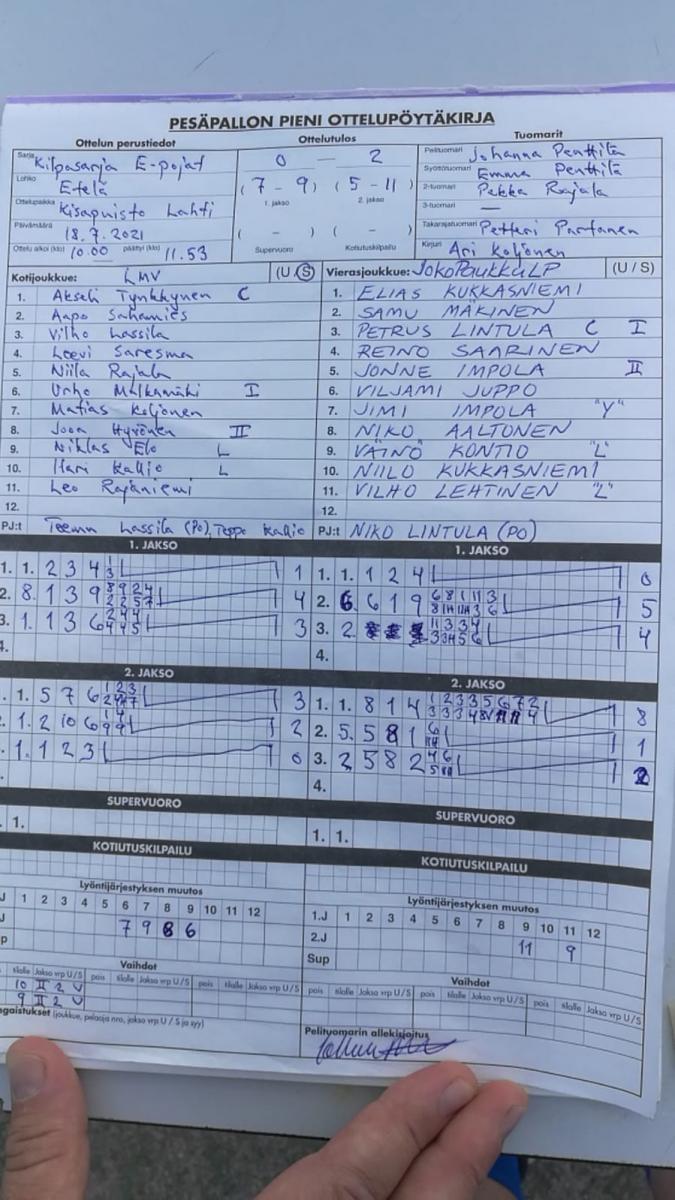 PESÄPALLON PIENI OTTELUPÖYTÄKIRJA
Ottelun perustiedot Ottelutulos Tuomarit
Sarja Kilpasarja E-pojat 0 — 2 Pelituomari Johanna Penttilä
Lohko Etelä (7 – 9) (5 – 11) Syöttötuomari Emma Penttilä
1. jakso 2. jakso 2-tuomari Pekka Rajala
Ottelupaikka Kisapuisto Lahti 3-tuomari —
Päivämäärä 18.7.2021 ( – ) ( – ) Takarajatuomari Petteri Partanen
Ottelu alkoi (klo) 10.00 päättyi (klo) 11.53 Supervuoro Kotiutuskilpailu Kirjuri Ari Koljonen
Kotijoukkue: LMV (U / S) Vierasjoukkue: JokoPaukkuLP (U / S)
1. Akseli Tynkkynen C 1. ELIAS KUKKASNIEMI
2. Aapo Sahamies 2. SAMU MÄKINEN
3. Vilho Lassila 3. PETRUS LINTULA C I
4. Leevi Saresma 4. REINO SAARINEN
5. Niila Rajala 5. JONNE IMPOLA II
6. Urho Malkamäki I 6. VILJAMI JUPPO
7. Matias Koljonen 7. JIMI IMPOLA "Y"
8. Joona Hyvönen II 8. NIKO AALTONEN
9. Niklas Elo L 9. VÄINÖ KONTIO "L"
10. Kallio L 10. NIILO KUKKASNIEMI
11. Leo Rajaniemi 11. VILHO LEHTINEN "L"
12. 12.
PJ:t Teemu Lassila (Po), Teppo Kallio PJ:t NIKO LINTULA (PO)
1. JAKSO 1. JAKSO
1. 1. 2 3 4 1 1. 1. 1 2 4 0
2. 8. 1 3 9 4 2. 6. 6 1 9 5
3. 1. 1 3 6 3 3. 2. 4
4. 4.
2. JAKSO 2. JAKSO
1. 5 7 6 3 1. 1. 8 1 4 8
1. 2 10 6 2 2. 5. 5 8 1 1
1. 1 2 3 0 3. 2 5 8 2 2
4.
SUPERVUORO SUPERVUORO
1. 1. 1.
KOTIUTUSKILPAILU KOTIUTUSKILPAILU
Lyöntijärjestyksen muutos Lyöntijärjestyksen muutos
1 2 3 4 5 6 7 8 9 10 11 12 1.J 1 2 3 4 5 6 7 8 9 10 11 12
7 9 8 6 2.J 11 9
Sup
Vaihdot Vaihdot
tilalle Jakso vrp U/S pois tilalle Jakso vrp U/S pois tilalle Jakso vrp U/S pois tilalle Jakso vrp U/S pois tilalle Jakso vrp U/S pois tilalle Jakso vrp U/S
10 II 2 U
9 II 2 U
(joukkue, pelaaja nro, jakso vrp U / S ja syy) Pelituomarin allekirjoitus